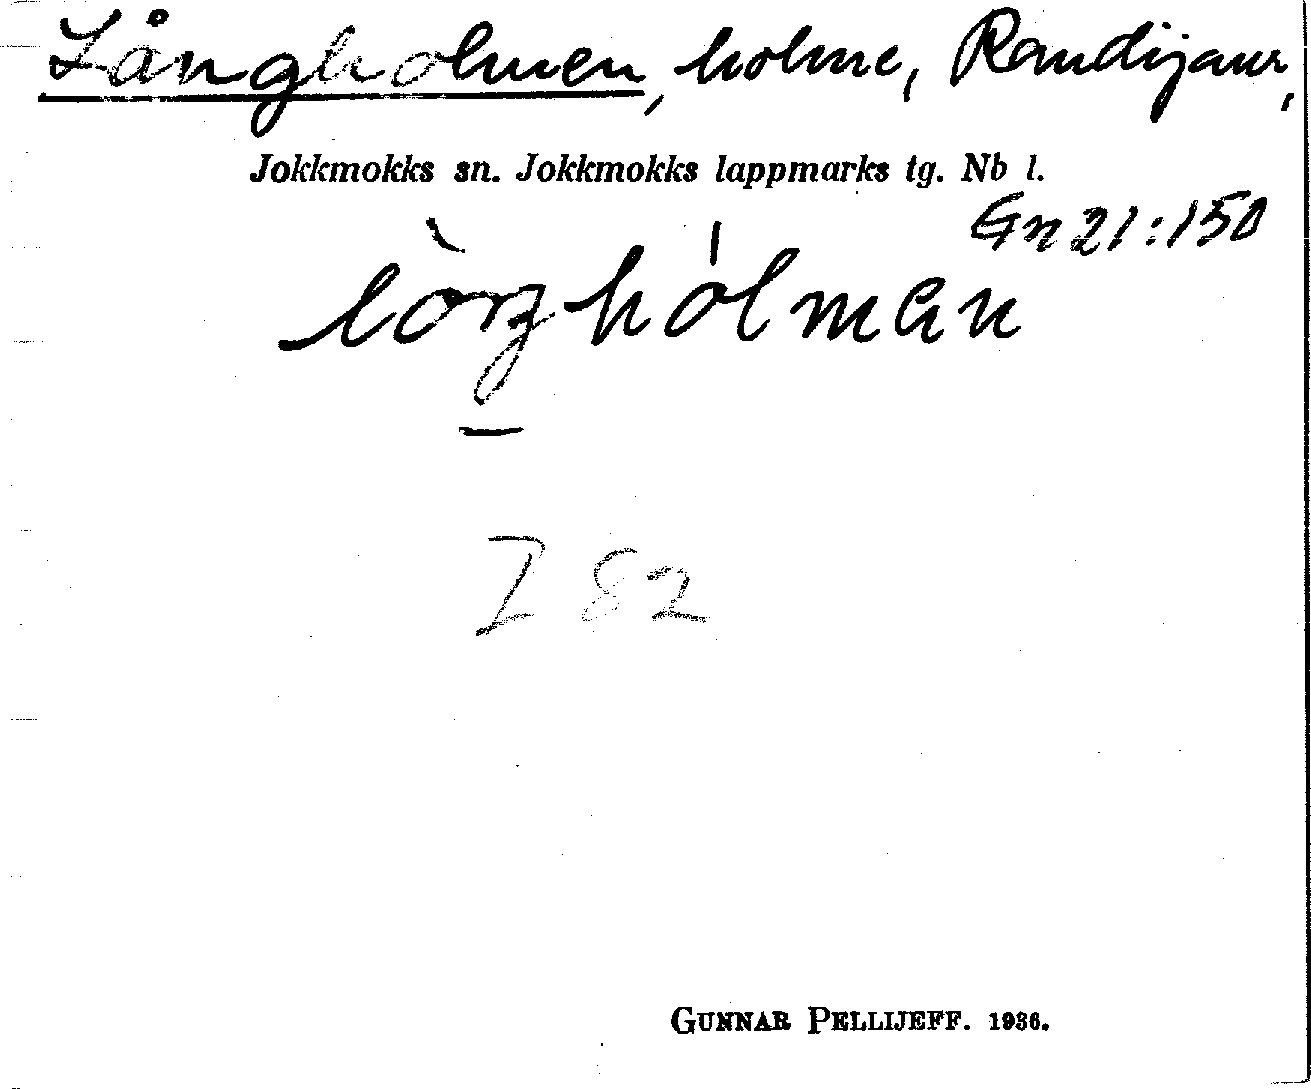 Långholmen, holme, Randijaur,
Jokkmokks sn. Jokkmokks lappmarks tg. Nb l.
Gn 21:150
I 82
GUNNAR PELLIJEFF. 1936.